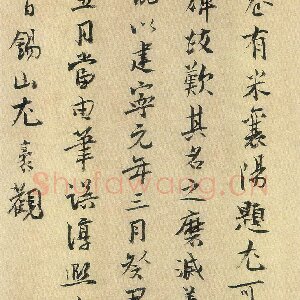 卷有米襄陽題尤可
碑故歎其名之磨滅
以建寧元年三月癸丑
五月當由筆誤淳熙
日錫山尤袤觀
Shufawang.cn